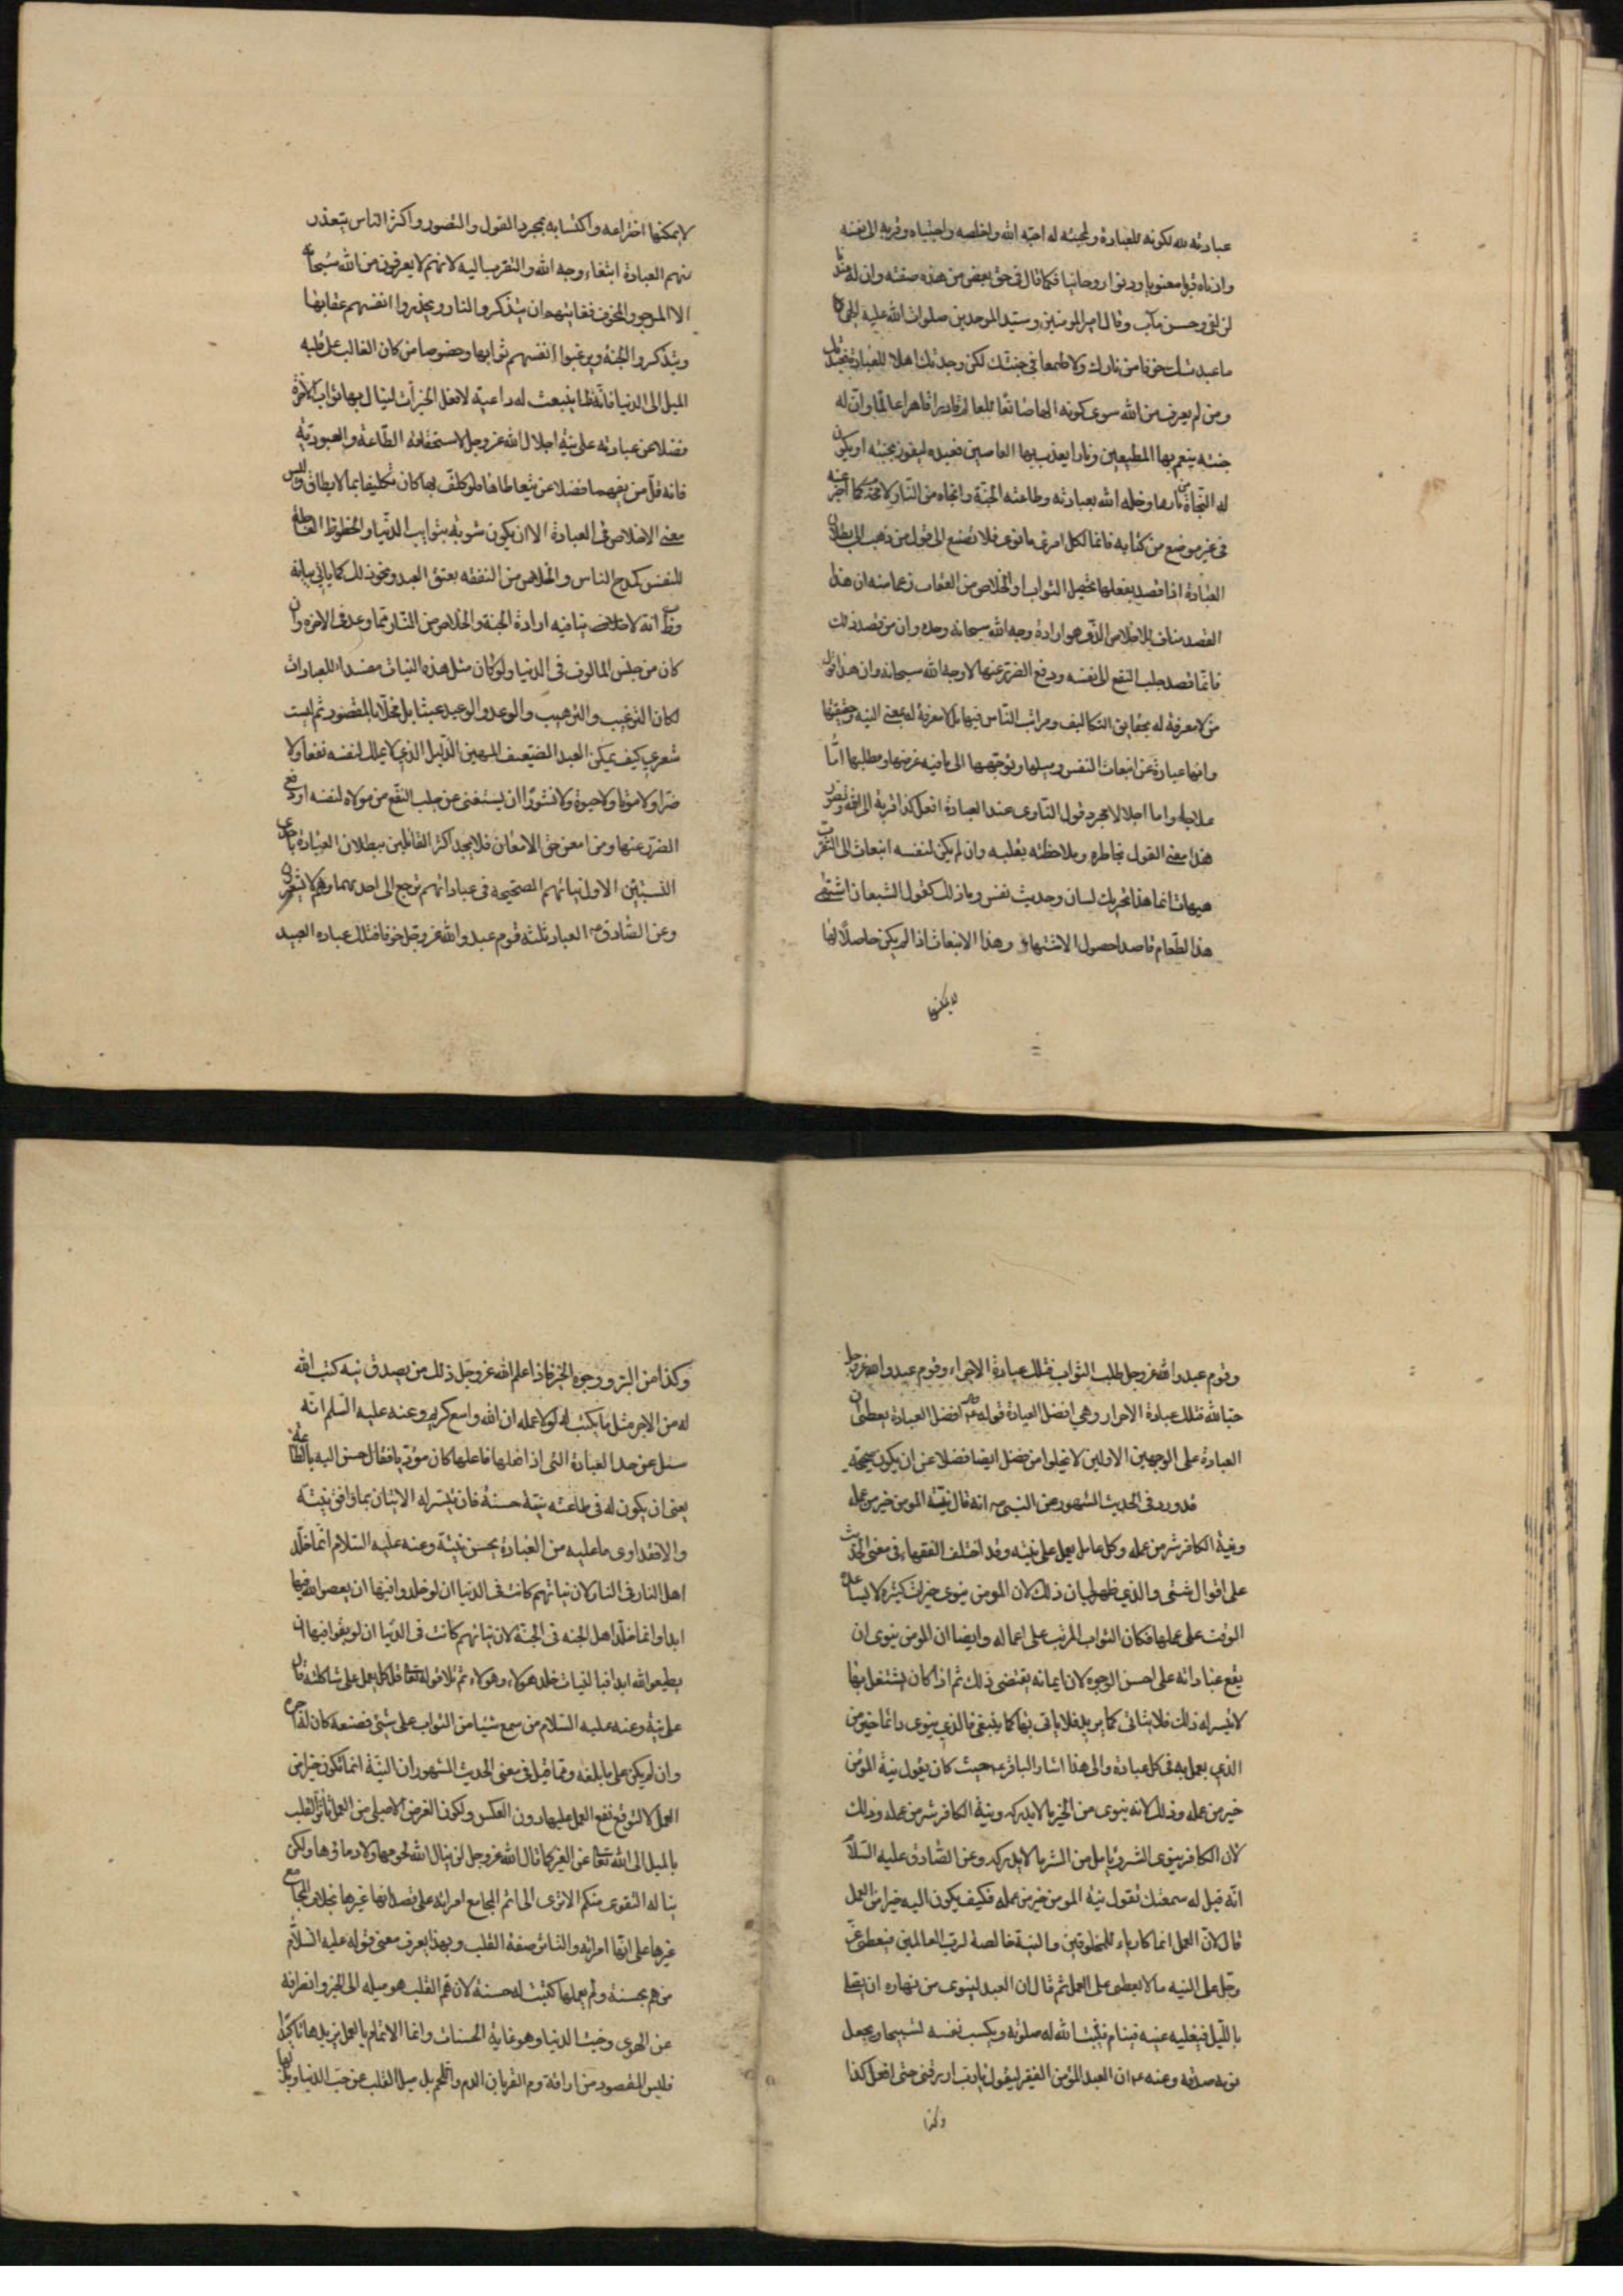 عبادته لله لكونه للعبادة ولمحبته له احبه الله واخلصه واجتباه وقربه الى نفسه
وادناه قربا معنويا ودنوا روحانيا كما قال في حق بعض من هذه صفته وان له عندنا
لزلفى وحسن مآب وقال امير المومنين وسيد الموحدين صلوات الله عليه الهى
ما عبدتك خوفا من نارك ولا طمعا في جنتك لكن وجدتك اهلا للعبادة فعبدتك
ومن لم يعرف من الله سوى كونه الها صانعا للعالم قادرا قاهرا عالما وان له
جنته ينعم بها المطيعين ونارا يعذب بها العاصين فعبده ليفوز بجنته او يكون
له النجاة من نارها ادخله الله بعبادته وطاعته الجنة وانجاه من النار لا محة كما اخبر عنه
في غير موضع من كتابه فانما لكل امرئ ما نوى فلا تصغ الى قول من ذهب الى بطلان
العبادة اذا قصد بفعلها تحصيل الثواب او الخلاص من العقاب زعما منه ان هذا
القصد مناف للاخلاص الذى هو ارادة وجه الله سبحانه وحده وان من قصد ذلك
فانما قصد جلب النفع الى نفسه ودفع الضرر عنها لا وجه الله سبحانه وان هذا قول
من لا معرفة له بحقايق التكاليف ومراتب الناس فيها بل لا معرفة له بمعنى النية وحقيقتها
وانها عبارة عن انبعاث النفس وميلها وتوجهها الى ما فيه غرضها ومطلبها اما
عاجلا واما اجلا لا مجرد قول الناوى عند العبادة افعل كذا قربة الى الله وتصور
هذا معنى القول بخاطره وملاحظته بقلبه وان لم يكن لنفسه انبعاث الى التقرب
هيهات انما هذا تحريك لسان وحديث نفس وما ذلك كقول الشبعان اشتهى
هذا الطعام قاصدا حصول الاشتهاء وهذا الانبعاث اذا لم يكن حاصلا لها
لا يمكنها
لا يمكنها اختراعه واكتسابه بمجرد القول والتصور واكثر الناس يتعذر
منهم العبادة ابتغاء وجه الله والتقرب اليه لانهم لا يعرفون من الله سبحانه
الا المرجو والمخوف فغايتهم ان يتذكروا النار ويحذروا انفسهم عقابها
ويتذكروا الجنة ويرغبوا انفسهم ثوابها وخصوصا من كان الغالب على قلبه
الميل الى الدنيا فانه قلما ينبعث له داعية لافعل الخيرات لينال بها ثواب الآخرة
فضلا عن عبادته على نية اجلال الله عز وجل لاستحقاقه الطاعة والعبودية
فانه قل من يفهمها فضلا عمن يتعاطاها فلو كلف بها كان تكليفا بما لا يطاق وليس
معنى الاخلاص فى العبادة الا ان يكون مشوبة بشوايب الدنيا والحظوظ العاجلة
للنفس كمدح الناس والخلاص من النفقة بعتق العبد ونحو ذلك كما ياتى بيانه
وظ انه لا خلاص ينافيه ارادة الجنة والخلاص من النار مما وعد فى الاخرة وان
كان من جنس المالوف فى الدنيا ولو كان مثل هذه النيات مفسدا للعبادات
لكان الترغيب والترهيب والوعد والوعيد عبثا بل مخلا بالمقصود ثم ليت
شعرى كيف يمكن العبد الضعيف المهين الذليل الذى لا يملك لنفسه نفعا ولا
ضرا ولا موتا ولا حيوة ولا نشورا ان يستغنى عن جلب النفع من مولاه لنفسه او دفع
الضرر عنها ومن امعن حق الامعان فلا يجد اكثر القائلين ببطلان العبادة باحدى
النيتين الاولى نياتهم الصحيحة فى عباداتهم ترجع الى احديهما وهم لا يشعرون
وعن الصادق ع العباد ثلثة قوم عبدوا الله عز وجل خوفا فتلك عبادة العبيد
وقوم عبدوا الله عز وجل طلب الثواب فتلك عبادة الاجراء وقوم عبدوا الله عز وجل
حبا لله فتلك عبادة الاحرار وهى افضل العبادة قوله ع افضل العبادة يعطى ان
العبادة على الوجهين الاولين لا يخلوا من فضل ايضا فضلا عن ان يكون صحيحة
قد ورد فى الحديث المشهور عن النبى ص انه قال نية المومن خير من عمله
ونية الكافر شر من عمله وكل عامل يعمل على نيته وقد اختلف الفقهاء فى معنى الحديث
على اقوال شتى والذى ظهر لى بان ذلك لان المومن ينوى خيرات كثيرة لا يساعده
الوقت على عملها فكان الثواب المرتب على اعماله وايضا ان المومن ينوى ان
يقع عباداته على احسن الوجوه لان ايمانه يقتضى ذلك ثم اذا كان يشتغل بها
لا يتيسر له ذلك فلا يتاتى كما يريد فلا ياتى بها كما ينبغى فالذى ينوى دائما خير من
الذى يعمل به فى كل عبادة والى هذا اشار الباقر ع حيث كان يقول نية المؤمن
خير من عمله وذلك لانه ينوى من الخير ما لا يدركه ونية الكافر شر من عمله وذلك
لان الكافر ينوى الشر ويامل من الشر ما لا يدركه وعن الصادق عليه السلام
انه قيل له سمعتك تقول نية المومن خير من عمله فكيف يكون النية خيرا من العمل
قال لان العمل انما كان رياء للمخلوقين والنية خالصة لرب العالمين فيعطى عز
وجل على النية ما لا يعطى على العمل ثم قال ان العبد لينوى من نهاره ان يصلى
بالليل فيغلبه عينيه فينام فيثبت الله له صلوته ويكتب نفسه تسبيحا ويجعل
نومه صدقة وعنه ع ان العبد المؤمن الفقير ليقول يا رب ارزقنى حتى افعل كذا
وكذا
وكذا من البر ووجوه الخير فاذا علم الله عز وجل ذلك من بصدق نية كتب الله
له من الاجر مثل ما يكتب له لو عمله ان الله واسع كريم وعنه عليه السلم انه
سئل عن حد العبادة التى اذا فعلها فاعلها كان مؤديا فقال حسن النية بالطاعة
يعنى ان يكون له فى طاعته نية حسنة فان تيسر له الاتيان بما وافق نيته
والا فقد ادى ما عليه من العبادة بحسن نيته وعنه عليه السلام انما خلد
اهل النار فى النار لان نياتهم كانت فى الدنيا ان لو خلدوا فيها ان يعصوا الله فيها
ابدا وانما خلد اهل الجنه فى الجنة لان نياتهم كانت فى الدنيا ان لو بقوا فيها ان
يطيعوا الله ابدا فبالنيات خلد هولاء وهولاء ثم تلا قوله تعا قل كل يعمل على شاكلته قال
على نيته وعنه عليه السلام من سمع شيئا من الثواب على شئ فصنعه كان له اجره
وان لم يكن على ما بلغه ومما قيل فى معنى الحديث المشهور ان النية انما تكون خيرا من
العمل لا لتوقع نفع العمل عليها دون العكس ولكون الغرض الاصلى من العمل تاثر القلب
بالميل الى الله تعا عن الغير كما قال الله عز وجل لن ينال الله لحومها ولا دماؤها ولكن
يناله التقوى منكم الا ترى الى اثم المجامع امراته على قصد انها غيرها بخلاف المجامع
غيرها على انها امراته والتاثر صفة القلب وبهذا يعرف معنى قوله عليه السلام
من هم بحسنة ولم يعملها كتبت له حسنة لان هم القلب هو ميله الى الخير وانصرافه
عن الهوى وحب الدنيا وهو غاية الحسنات وانما الاتمام بالعمل يزيدها تاكيدا
فليس المقصود من اراقة دم القربان الدم واللحم بل ميل القلب عن حب الدنيا وبذلها